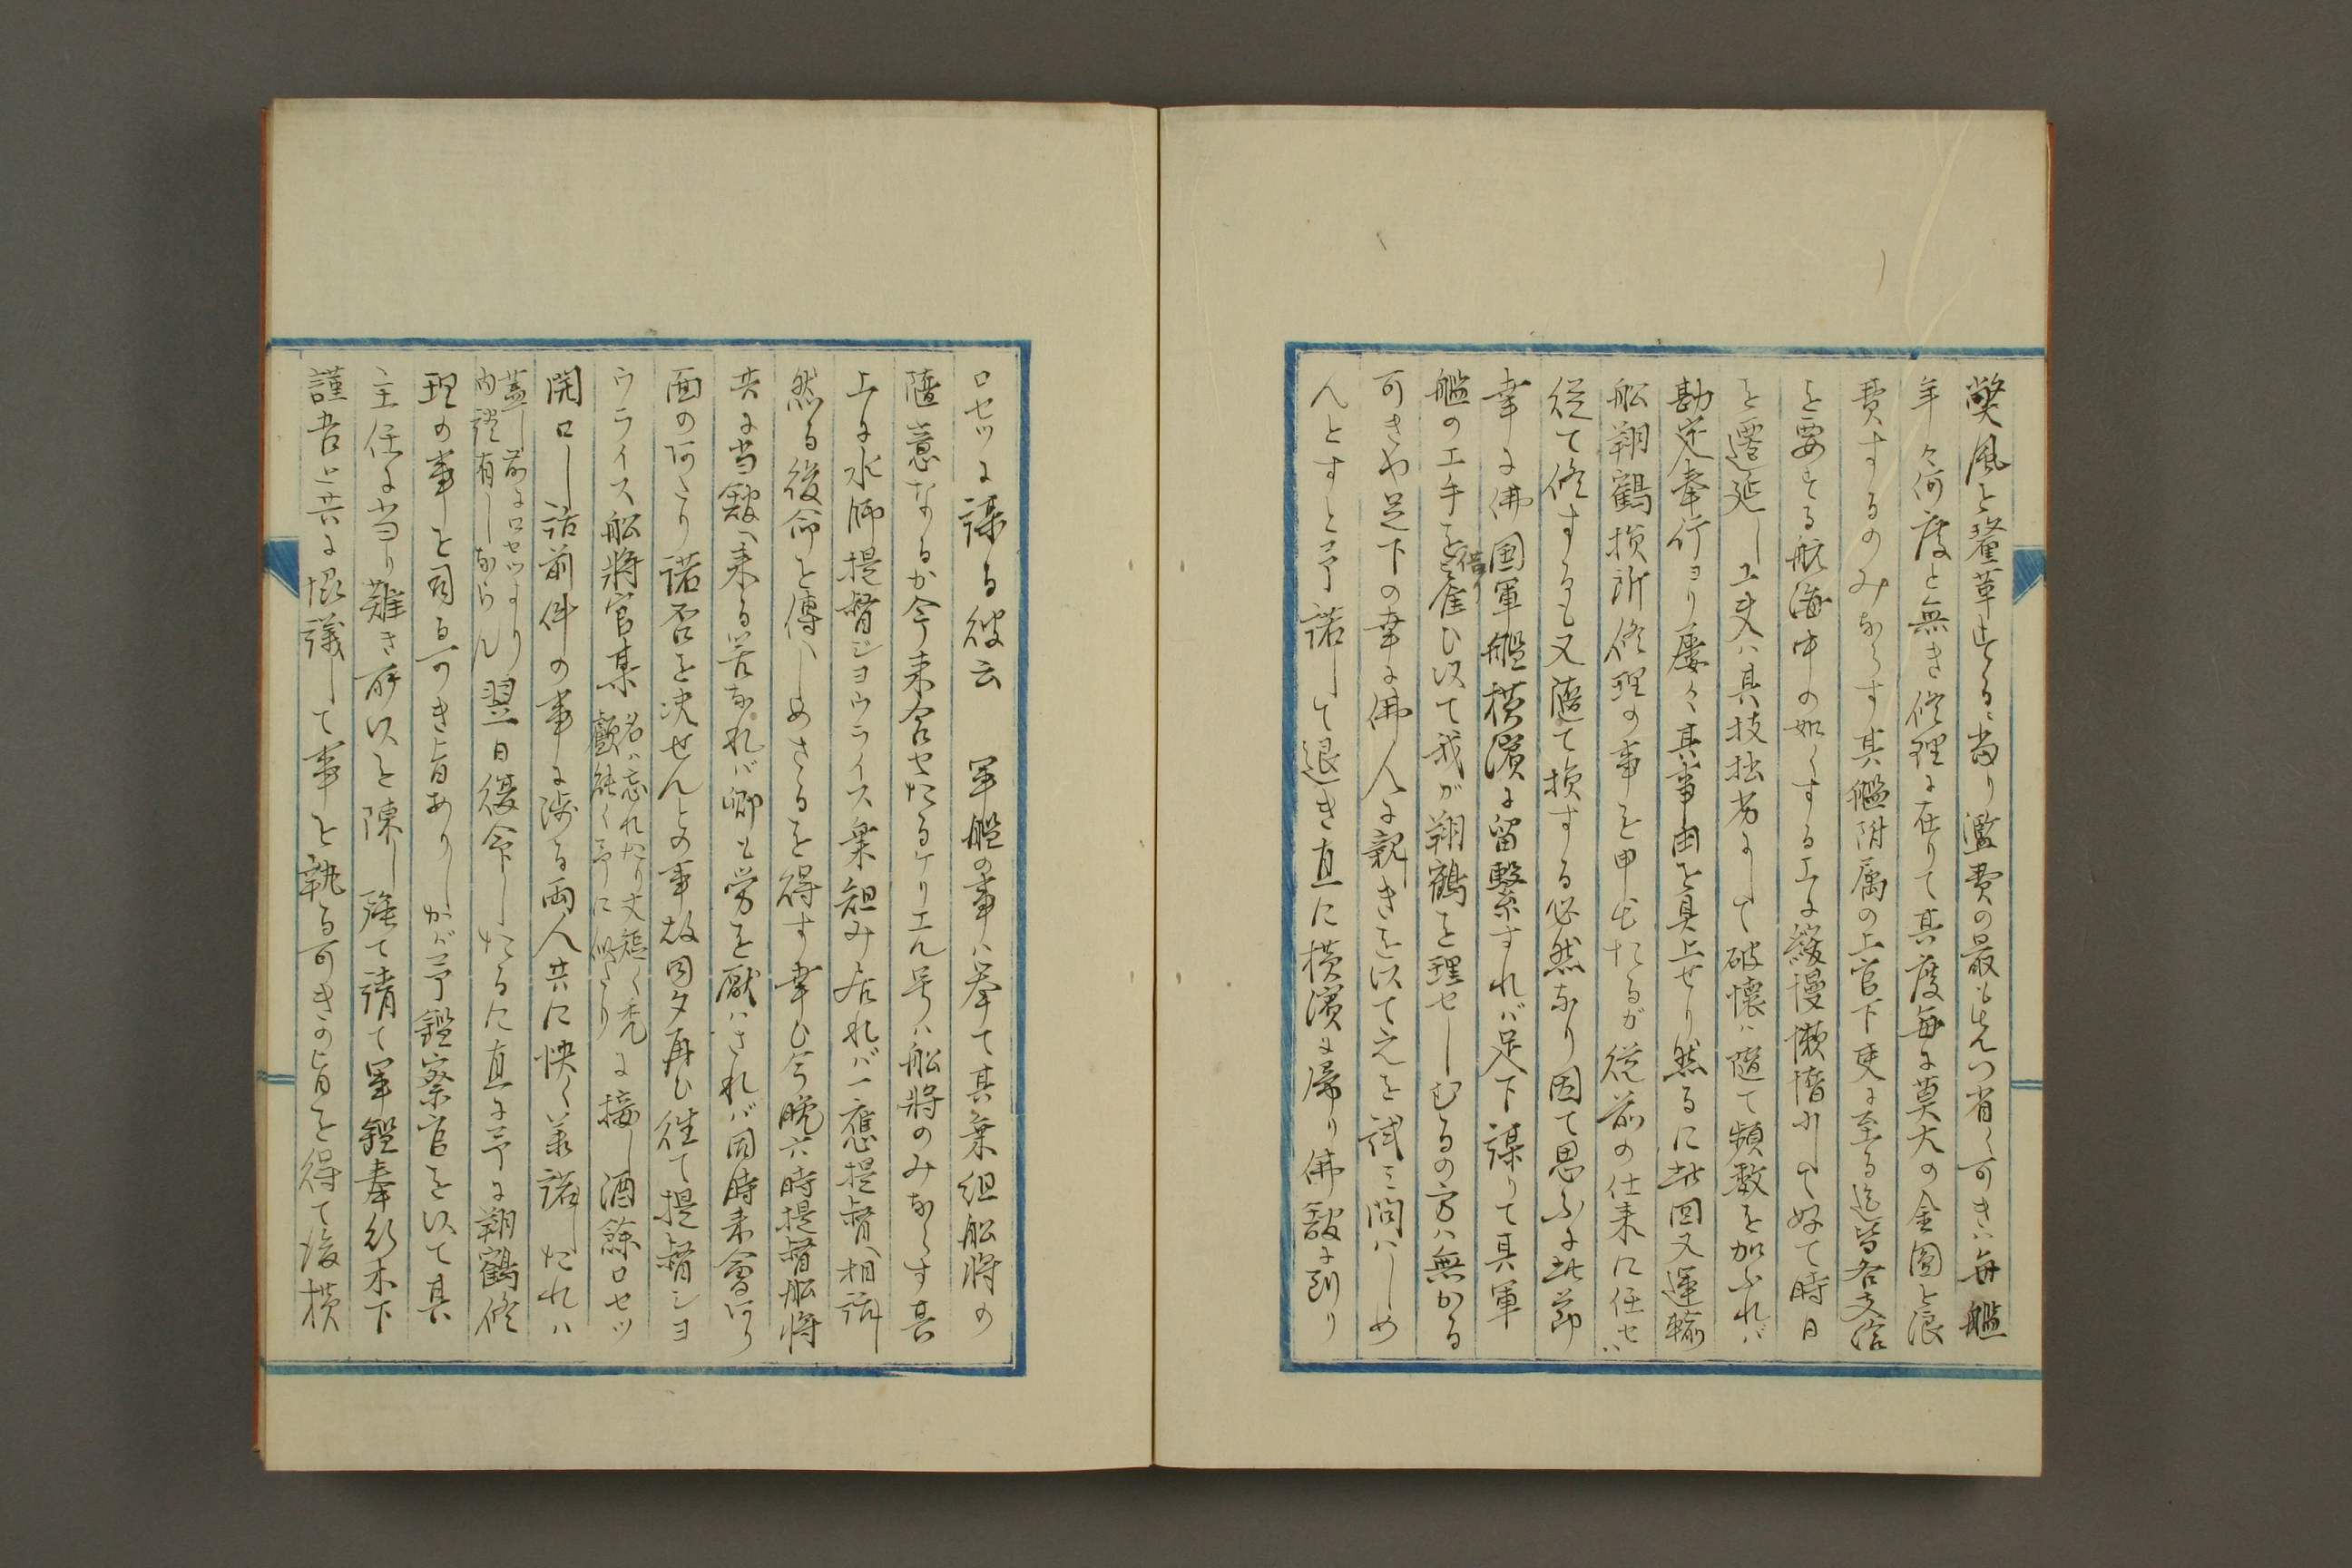 弊風を釐革するに當り濫費の最も先つ省く可きハ毎艦
年々何度と無き修理に在りて其度毎に莫大の金圓を浪
費するのみならす其艦附属の上官下吏に至る迄皆各交
を要する航海中の如くする工に緩慢懶惰にして好て時日
を遷延し工夫ハ其技拙劣にして破懐ハ随て頻数を加ふれバ
勘定奉行ヨリ屡々其事由を具上せり然るに此回又運輸
船翔鶴損所修理の事を申出たるが従前の仕来に任せバ
従て修するも又随て損する必然なり因て思ふに此節
幸に佛国軍艦横濱に留繋すれバ足下謀りて其軍
艦の工手を借り雇ひ以て我が翔鶴を理せしむるの方ハ無かる
可きや足下の幸に佛人に親きを以て之を試ミ問ハしめ
んとすと予諾して退き直に横濱に帰り佛舘に到り
ロセツに謀る彼云 軍艦の事ハ挙て其乗組船将の
随意なるか今来合セたるケリエル号ハ船将のみならす其
上に水師提督ジヨウライス乗組み居れバ一應提督へ相謀
然る後命を傳へしめさるを得す幸ひ今晩六時提督船将
共に当舘へ来る筈なれバ卿も労を厭ハされバ同時来會あり
面のあたり諾否を決せんとの事故同夕再ひ往て提督ジヨ
ウライス船将官某名ハ忘れたり丈短く禿顱能く予に似たりに接し酒餘ロセツ
開口し話前件の事に渉る両人共に快く承諾したれハ
蓋し前にロセツより内談有しならん翌日復命したるに直に予に翔鶴修
理の事を司る可き旨ありしかバ予鑑察官を以て其
主任に当り難き所以を陳し強て請て軍艦奉行木下
謹吾と共に協議して事を執る可きの旨を得て後横